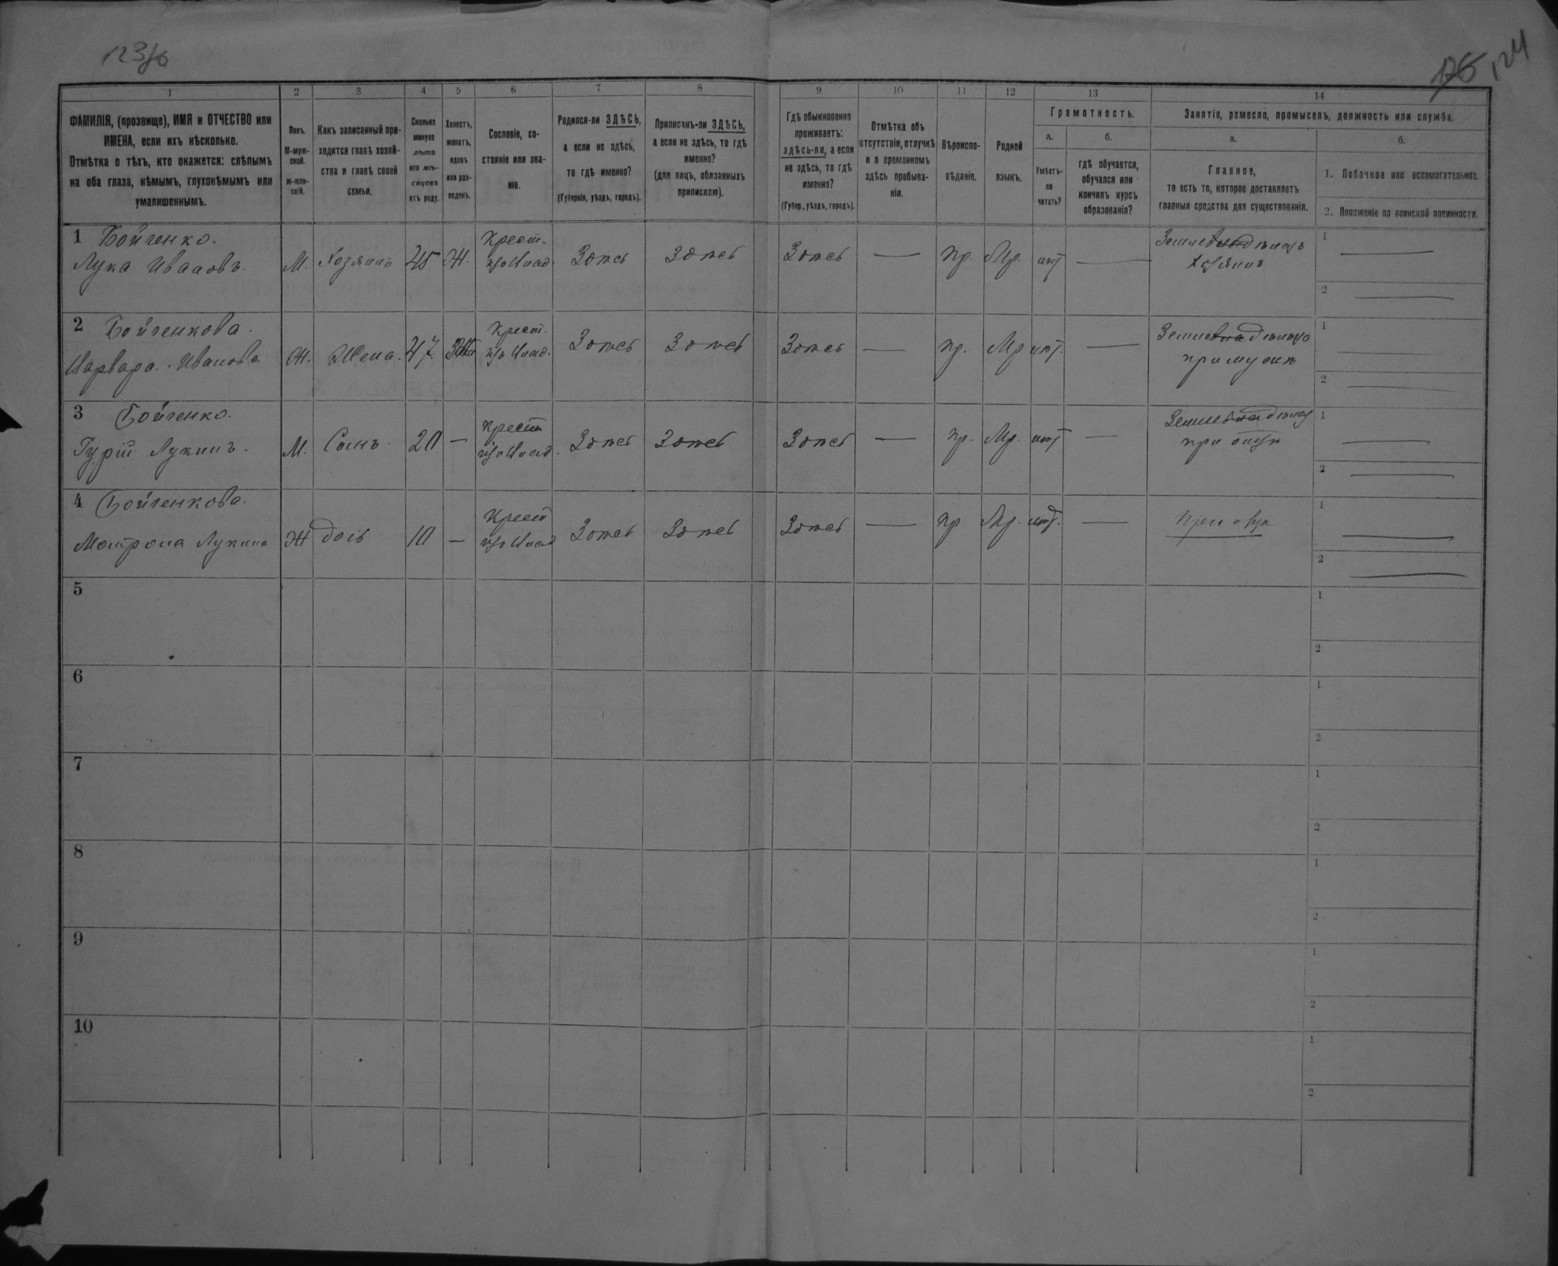 123об
125 124
1
2
3
4
5
6
7
8
9
10
11
12
13
14
ФАМИЛІЯ, (прозвище), ИМЯ и ОТЧЕСТВО или
ИМЕНА, если ихъ нѣсколько.
Отмѣтка о тѣхъ, кто окажется: слѣпымъ
на оба глаза, нѣмымъ, глухонѣмымъ или
умалишеннымъ.
Полъ.
М-муж-
ской.
Ж-жен-
скій.
Какъ записанный при-
ходится главѣ хозяй-
ства и главѣ своей
семьи.
Сколько
минуло
лѣтъ
или мѣ-
сяцевъ
отъ роду.
Холостъ,
женатъ,
вдовъ
или раз-
веденъ.
Сословіе, со-
стояніе или зва-
ніе.
Родился-ли ЗДѢСЬ,
а если не здѣсь,
то гдѣ именно?
(Губернія, уѣздъ, городъ).
Приписанъ-ли ЗДѢСЬ,
а если не здѣсь, то гдѣ
именно?
(для лицъ, обязанныхъ
припискою).
Гдѣ обыкновенно
проживаетъ:
здѣсь-ли, а если
не здѣсь, то гдѣ
именно?
(Губер., уѣздъ, городъ).
Отмѣтка объ
отсутствіи, отлучкѣ
и о временномъ
здѣсь пребыва-
ніи.
Вѣроиспо-
вѣданіе.
Родной
языкъ.
Грамотность.
а.
Умѣетъ-
ли
читать?
б.
гдѣ обучается,
обучался или
кончилъ курсъ
образованія?
Занятіе, ремесло, промыселъ, должность или служба.
а.
Главное,
то есть то, которое доставляетъ
главныя средства для существованія.
б.
1. Побочное или вспомогательное.
2. Положеніе по воинской повинности.
1 Бойченко.
Лука Ивановъ. М. Хозяинъ 45 Ж. Крест. Здѣсь Здѣсь Здѣсь — пр. Мр. нѣт —
Хозяинъ
1 —
2 —
2 Бойченкова.
Варвара Иванова Ж. Жена. 47 Крест. Здѣсь Здѣсь Здѣсь — пр. Мр нѣт —
при мужѣ
1 —
2 —
3 Бойченко.
Гурій Лукинъ. М. Сынъ. 20 — Крест Здѣсь Здѣсь Здѣсь — пр. Мр. нѣт —
при отцѣ
1 —
2 —
4 Бойченкова.
Матрона Лукина Ж дочь 10 — Крест Здѣсь Здѣсь Здѣсь — пр Мр. нѣт. —
При отцѣ
1 —
2 —
5
1
2
6
1
2
7
1
2
8
1
2
9
1
2
10
1
2